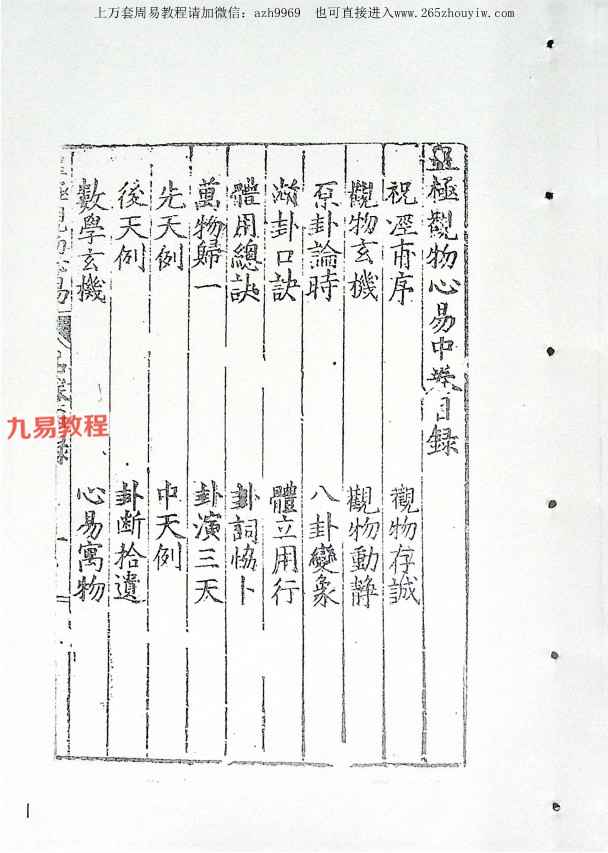 上万套周易教程请加微信：azh9969　也可直接进入www.265zhouyiw.com
皇極觀物心易中卷目録
祝湮甫序　觀物存誠
觀物玄機　觀物動靜
原卦論時　八卦變象
卦口訣　體立用行
體用總訣　卦詞恊卜
萬物歸一　卦演三天
先天例　中天例
後天例　卦斷拾遺
數學玄機　心易寓物
九易教程